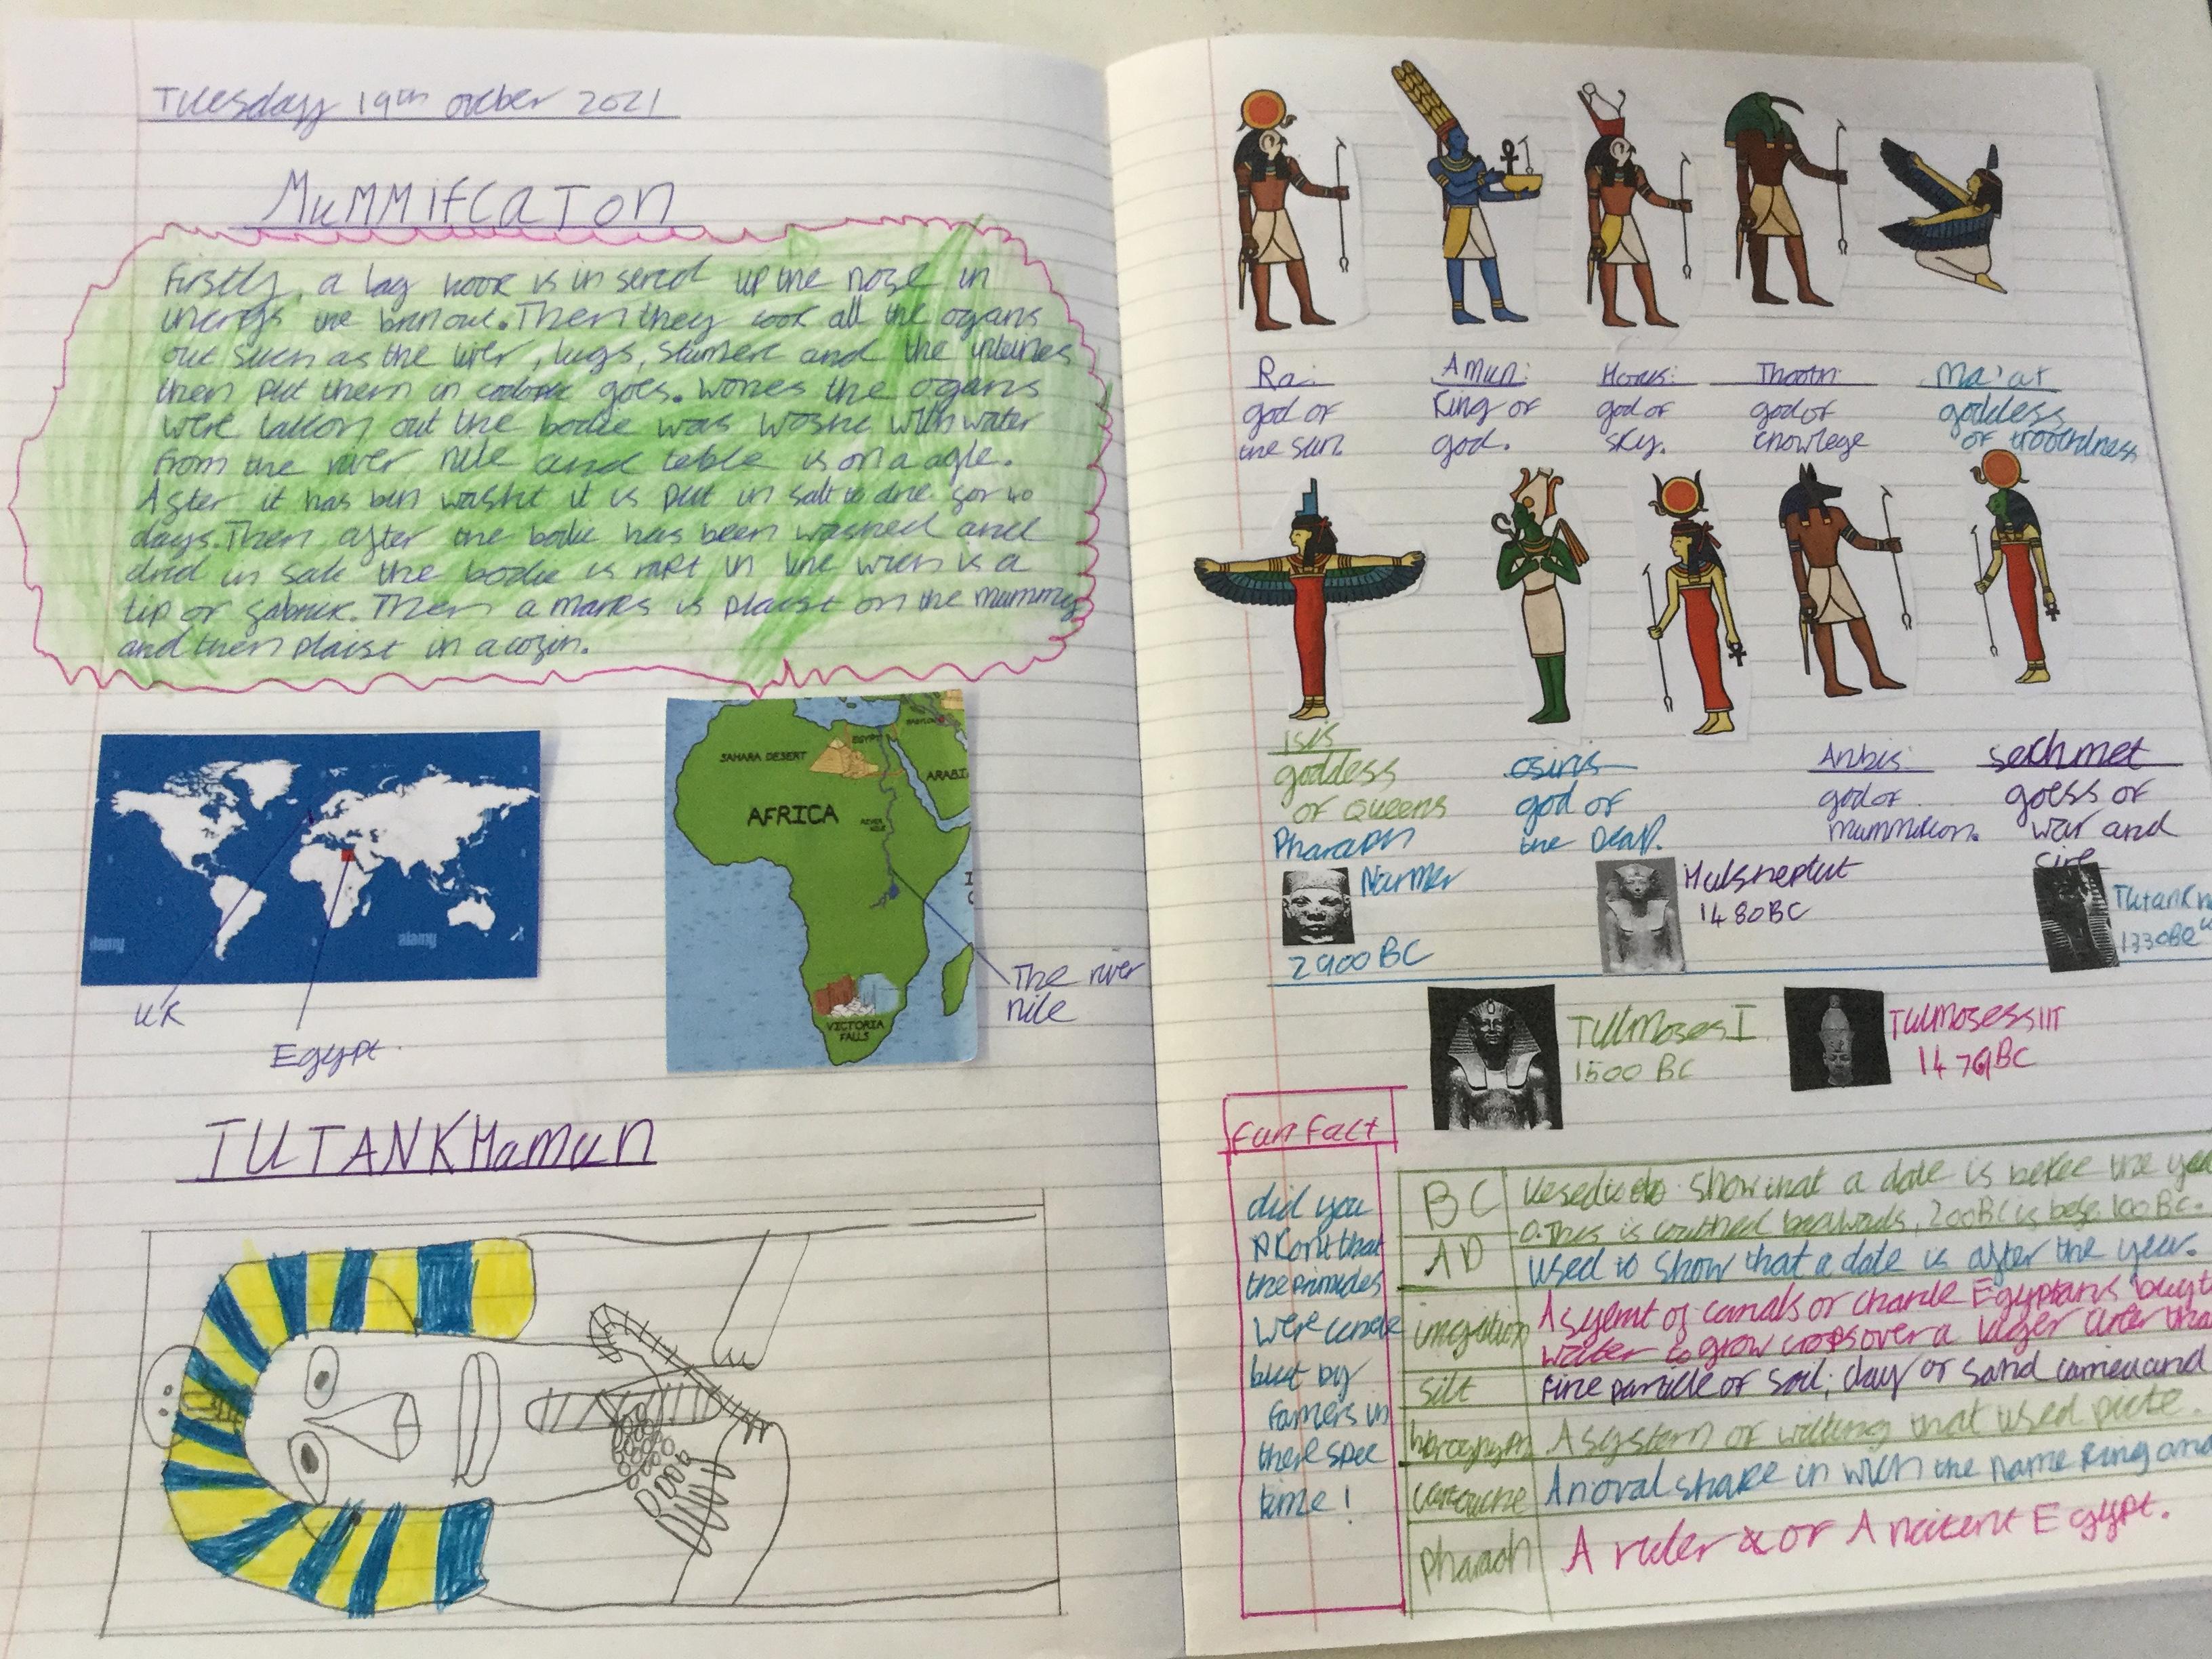 Tuesday 19th octber 2021
MuMMifcaTon
Firstly, a lag hook is in sered up the noze in
the brin out. Then they took all the organs
out such as the liver, lugs, stumere and the
then put them in goes. the organs
were takon out the bodie was washe with water
from the river nile and table is on a agle.
After it has bin washt it is put in salt to drie for 40
days. Then after the bodie has been washed and
drid in salt the bodie is rapt in line wich is a
tip of fabrik. Then a marks is plaist on the mummy
and then plaist in a cofin.
SAHARA DESERT
EGYPT
BABYLON
ARABI
AFRICA
RIVER NILE
VICTORIA
FALLS
alamy
alamy
UK
Egypt.
The river
nile
TUTANKHamun
Ra:
god of
the sun.
Amun:
King of
god.
Horus:
god of
sky.
Thooth:
god of
knowlege
Ma'at
goddess
of troothdness
isis
goddess
of Queens
osiris
god of
the Deap.
Anbis:
god of
mummifcon.
sechmet
goess of
war and
fire
Pharaph
Narmer
2900 BC
Hatsheptut
1480BC
TutanKh
1330BC
TUtMoses I
1500 BC
TUtMosess III
BC
fun fact
did you
that
the primides
were
bilt by
famers in
there spee
time!
BC
Used to show that a date is before the yea
0. This is couthned bacwads, 200BC is befe 100BC.
AD
used to show that a date is after the year.
irrigation
A syemt of canals or chanle Egyptians
water to grow crops over a lager
silt
Fine particle of soil, clay or sand carried and
A system of witting that used picte.
cartouche
An oval shape in wich the name King and
pharaoh
A ruler of Ancient Egypt.